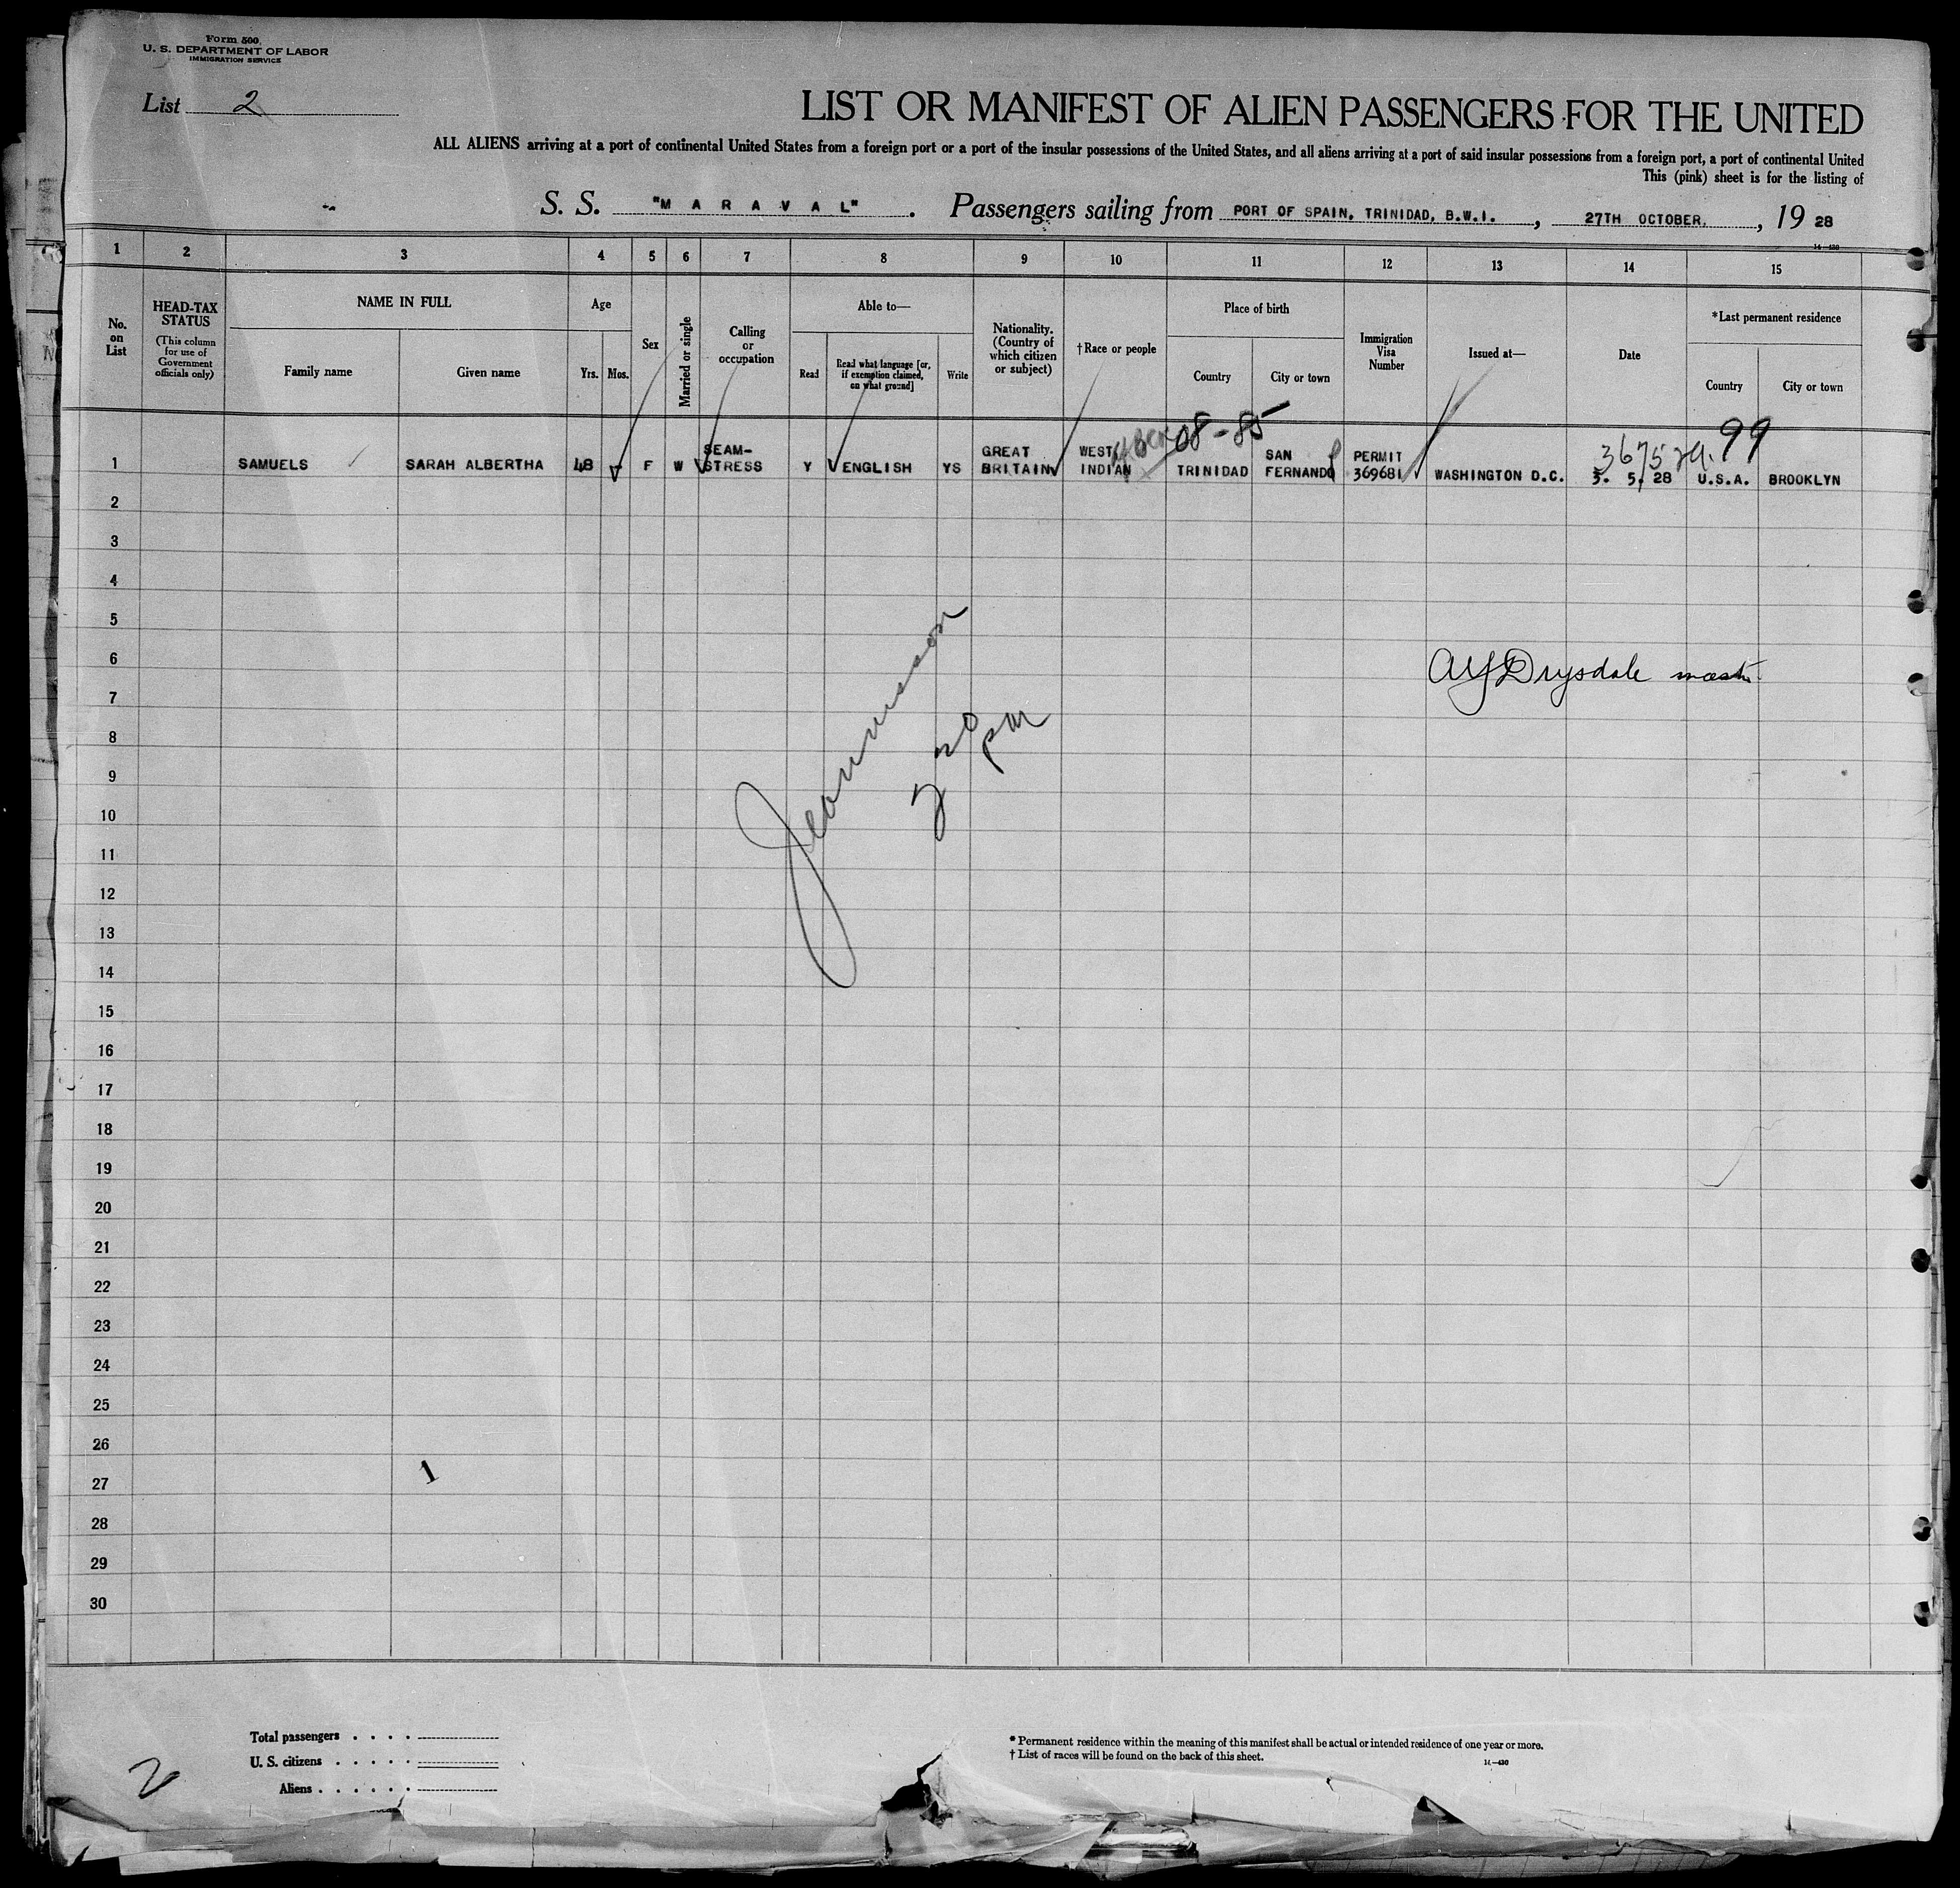 Form 500.
U. S. DEPARTMENT OF LABOR
IMMIGRATION SERVICE
List 2
LIST OR MANIFEST OF ALIEN PASSENGERS FOR THE UNITED
ALL ALIENS arriving at a port of continental United States from a foreign port or a port of the insular possessions of the United States, and all aliens arriving at a port of said insular possessions from a foreign port, a port of continental United
This (pink) sheet is for the listing of
S. S. "M A R A V A L" . Passengers sailing from PORT OF SPAIN, TRINIDAD, B.W.I. , 27TH OCTOBER. , 19 28
14-430
1 2 3 4 5 6 7 8 9 10 11 12 13 14 15
No. on List
HEAD-TAX STATUS
(This column for use of Government officials only)
NAME IN FULL
Family name
Given name
Age
Yrs.
Mos.
Sex
Married or single
Calling or occupation
Able to—
Read
Read what language [or, if exemption claimed, on what ground]
Write
Nationality. (Country of which citizen or subject)
†Race or people
Place of birth
Country
City or town
Immigration Visa Number
Issued at—
Date
*Last permanent residence
Country
City or town
08-85
99
1 SAMUELS SARAH ALBERTHA 48 F W SEAM-STRESS Y ENGLISH YS GREAT BRITAIN WEST INDIAN TRINIDAD SAN FERNANDO PERMIT 369681 WASHINGTON D.C. 3. 5. 28 U.S.A. BROOKLYN
2
3
4
5
6
Drysdale
7
8
pm
9
10
11
12
13
14
15
16
17
18
19
20
21
22
23
24
25
26
1
27
28
29
30
Total passengers . . . .
U. S. citizens . . . . .
Aliens . . . . . .
2
* Permanent residence within the meaning of this manifest shall be actual or intended residence of one year or more.
† List of races will be found on the back of this sheet.
14-430